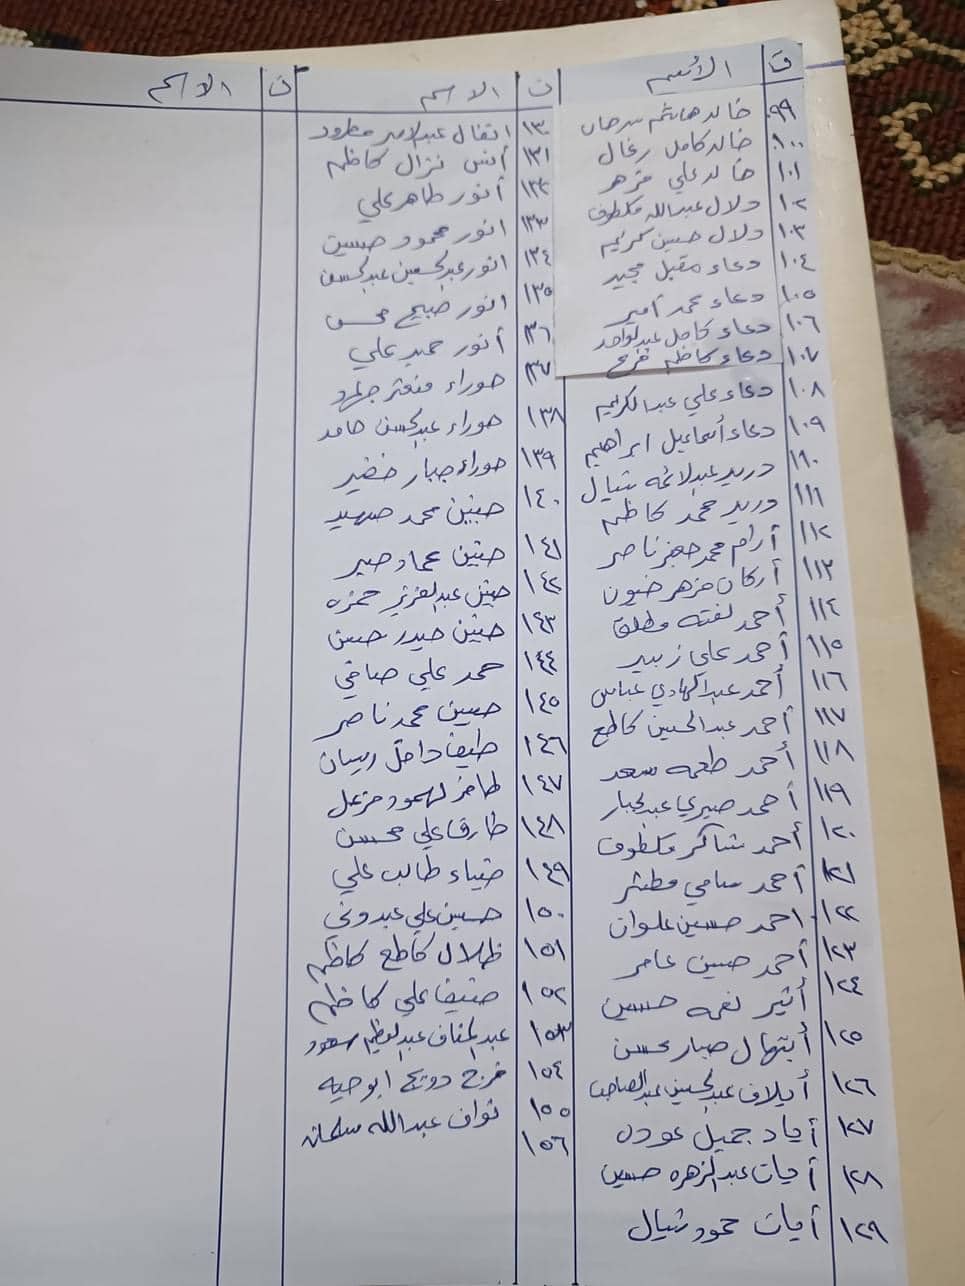 ت الأسم
٩٩ خالد هاشم سرحان
١٠٠ خالد كامل رغال
١٠١ خالد علي مزهر
١٠٢ دلال عبدالله مكطوف
١٠٣ دلال حسين كريم
١٠٤ دعاء مقبل مجيد
١٠٥ دعاء محمد امير
١٠٦ دعاء كامل عبدالواحد
١٠٧ دعاء كاظم فرج
١٠٨ دعاء علي عبدالكريم
١٠٩ دعاء أسماعيل ابراهيم
١١٠ دريد عبدالائمه شيال
١١١ وريد محمد كاظم
١١٢ أرام محمد جعفر ناصر
١١٣ أركان مزهر خيون
١١٤ أحمد لفته مطلق
١١٥ أحمد علي زبير
١١٦ أحمد عبدالهادي عباس
١١٧ أحمد عبدالحسين كاطع
١١٨ أحمد طعمه سعد
١١٩ أحمد صبري عبدالجبار
١٢٠ أحمد شاكر مكطوف
١٢١ أحمد سامي مطشر
١٢٢ احمد حسين علوان
١٢٣ أحمد حسين عامر
١٢٤ أثير نعمه حسين
١٢٥ أبتهال جبار محسن
١٢٦ أيلاف عبدالحسين عبدالصاحب
١٢٧ أياد جميل عوده
١٢٨ أيات عبدالزهره حسين
١٢٩ أيات حمود شيال
ت الاسم
١٣٠ انفال عبدالامير مطرود
١٣١ أنس نزال كاظم
١٣٢ أنور طاهر علي
١٣٣ انور محمود حسين
١٣٤ انور عبدالحسين عبدالحسن
١٣٥ انور صبيح محسن
١٣٦ أنور حميد علي
١٣٧ حوراء منعثر
١٣٨ حوراء عبدالحسن حامد
١٣٩ حوراء جبار خضير
١٤٠ حنين محمد
١٤١ حنين عماد صبر
١٤٢ حنين عبدالعزيز حمزه
١٤٣ حنين حيدر حسن
١٤٤ حمد علي صافي
١٤٥ حسين محمد ناصر
١٤٦ طيف داخل ريسان
١٤٧ لهمود مزعل
١٤٨ طارق علي محسن
١٤٩ ضياء طالب علي
١٥٠ حسين علي عبدوني
١٥١ ظلال كاطع كاظم
١٥٢ علي كاظم
١٥٣ عبدالعظيم سعود
١٥٤ فرج دويج ابوحيه
١٥٥ نواف عبدالله سلمان
١٥٦
ت الاسم